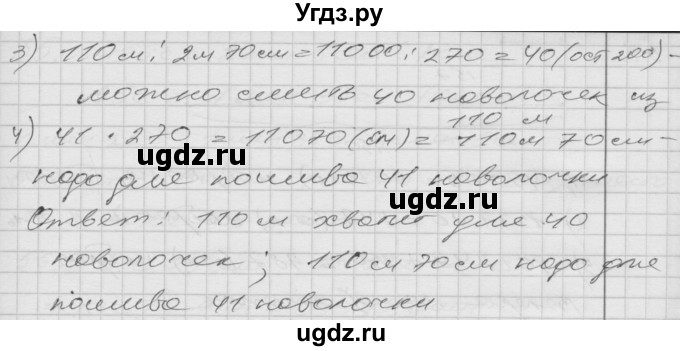 Угдз.ру
3) 110 м : 2м 70 см = 11000 : 270 = 40 (ост 200) -
можно сшить 40 наволочек из
110 м
4) 41 · 270 = 11070 (см) = 110 м 70 см -
ugdz.ru
надо для пошива 41 наволочки
ugdz.ru
Ответ: 110 м хватит для 40
наволочек; 110 м 70 см надо для
пошива 41 наволочки
ugdz.ru
ugdz.ru